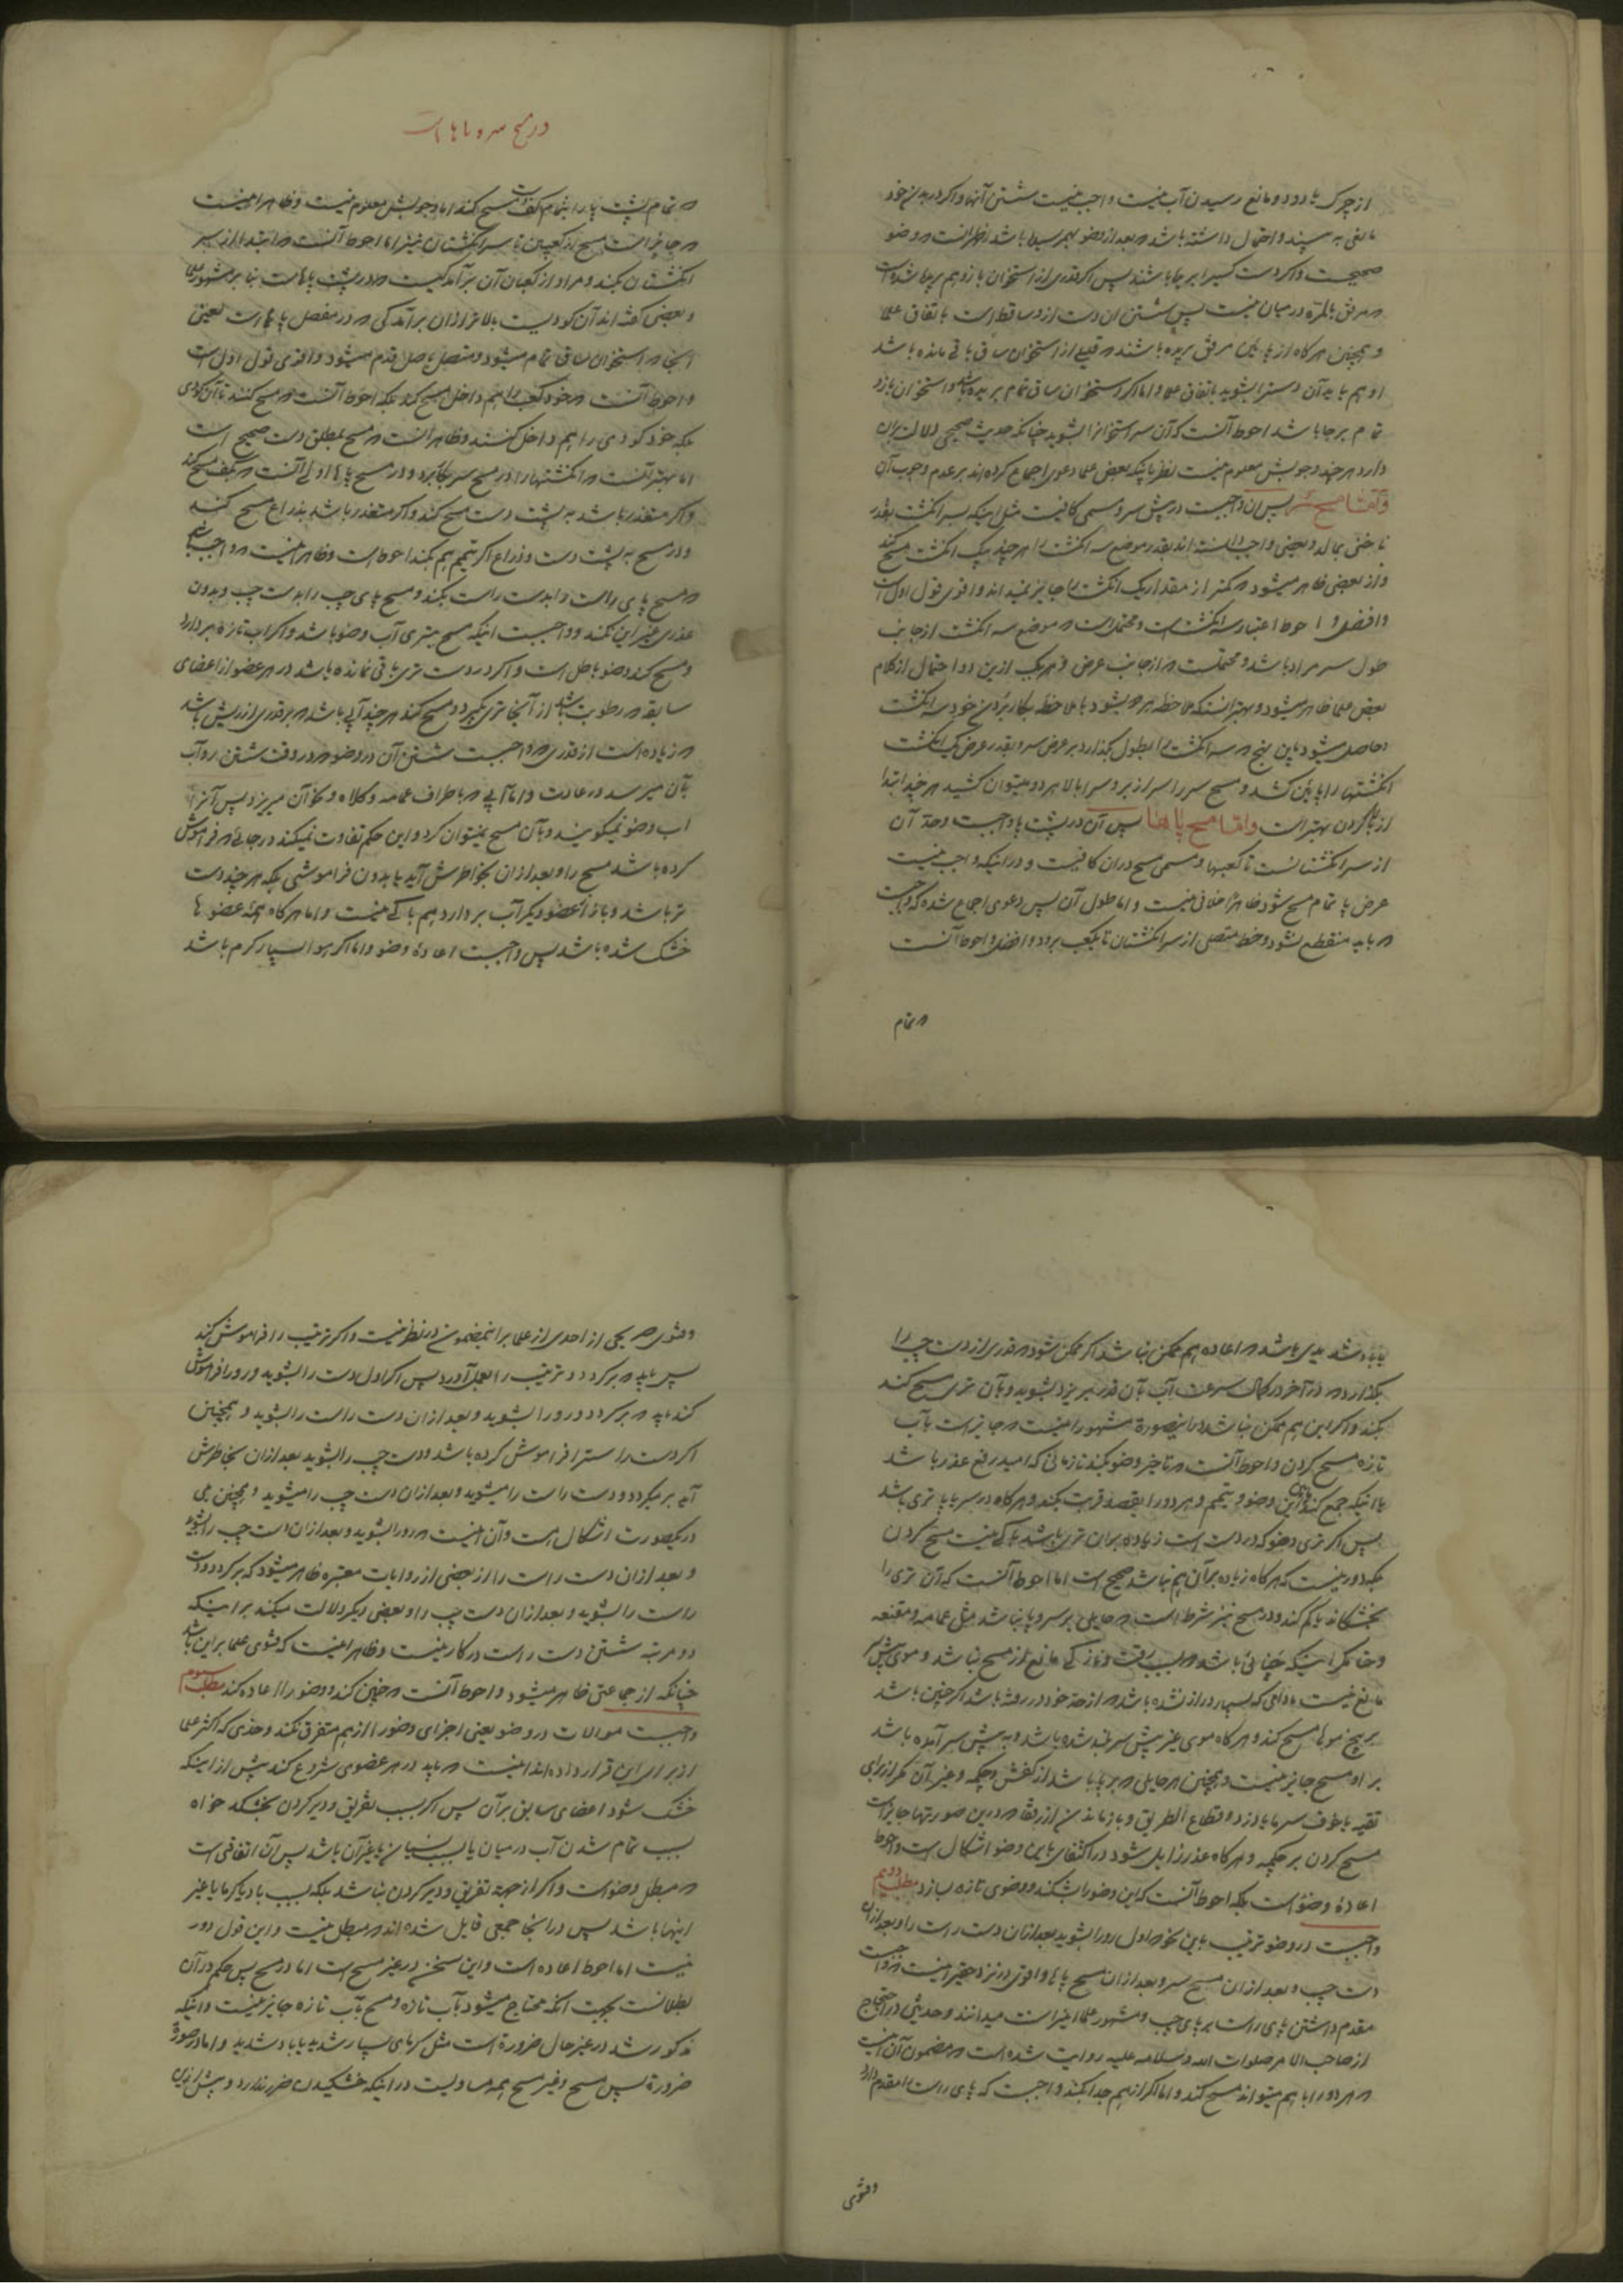 از چرک یا دود و مانع رسیدن آب نیست واجب نیست شستن آنها و اگر در بدن خود
مانعی به بیند و احتمال داشته باشد که بعد از وضو بهم رسیده باشد ظاهر آنست که وضو
صحیحست و اگر دست کسیرا بریده باشند پس اگر قدری از استخوان بازو هم بریده شده است
که مرفق بالمره در میان نیست پس شستن آن دست از او ساقط است باتفاق علما
و همچنین هر گاه از پایین مرفق بریده باشند که قلیلی از استخوان ساق باقی مانده باشد
او هم باید آن دست را بشوید باتفاق علما و اما اگر استخوان ساق تمام بریده باشد و استخوان بازو
تمام برجا باشد احوط آنست که آن سر استخوانرا بشوید چنانکه حدیث صحیحی دلالت بر آن
دارد هر چند وجوبش معلوم نیست نظر باینکه بعضی علما دعوی اجماع کرده اند بر عدم وجوب آن
و اما مسح سر پس آن واجبست در پیش سر و مسمی کافیست مثل اینکه بسر انگشت بقدر
ناخنی بمالد و بعضی واجب دانسته اند بقدر موضع سه انگشت را هر چند بیک انگشت مسح کند
و از بعضی ظاهر میشود که کمتر از مقدار یک انگشت را جایز نمیداند و اقوی قول اول است
و افضل و احوط اعتبار سه انگشت است و محتمل است که موضع سه انگشت از جانب
طول سر مراد باشد و محتملست که از جانب عرض و هر یک ازین دو احتمال از کلام
بعضی علما ظاهر میشود و بهتر آنستکه ملاحظه هر دو بشود با ملاحظه بکار بردن خود سه انگشت
و حاصل میشود باین نهج که سه انگشت را بطول بگذارد بر عرض سر و بقدر عرض یک انگشت
انگشتها را پایین کشد و مسح سر را سرازیر و سرا بالا هر دو میتوان کشید هر چند ابتدا
از بالا کردن بهتر است و اما مسح پاها پس آن در پشت پا واجبست و حد آن
از سر انگشتانست تا کعبها و مسمی مسح در آن کافیست و در اینکه واجب نیست
عرض پا تمام مسح شود ظاهرا خلافی نیست و اما طول آن پس دعوی اجماع شده که واجبست
که باید منقطع نشود و خط متصلی از سر انگشتان تا بکعب برود و افضل و احوط آنست
که تمام
در مسح سر و پاها است
که تمام پشت پا را بتمام کف دست مسح کند اما وجوبش معلوم نیست و ظاهر اینست
که جایز است مسح از کعبین تا سر انگشتان نیز اما احوط آنست که ابتدا از سر
انگشتان بکند و مراد از کعبان آن برآمدگیست که در پشت پاهاست بنابر مشهور علما
و بعضی گفته اند آن گودیست بالاتر از آن برآمدگی که در مفصل پاها است یعنی
آنجا که استخوان ساق تمام میشود و متصل باصل قدم میشود و اقوی قول اول است
و احوط آنست که خود کعب را هم داخل مسح کند بلکه احوط آنست که مسح کنند تا آن گودی
بلکه خود گودی را هم داخل کنند و ظاهر آنست که مسح بمطلق دست صحیح است
اما بهتر آنست که انگشتها را در مسح سر بکار برد و در مسح پاها اولی آنست که بکف مسح کند
و اگر متعذر باشد به پشت دست مسح کند و اگر متعذر باشد بذراع مسح کند
و در مسح به پشت دست و ذراع اگر تیمم هم بکند احوط است و ظاهر اینست که واجب باشد
که مسح پای راست را بدست راست بکند و مسح پای چپ را بدست چپ و بدون
عذری غیر این نکند و واجبست اینکه مسح بتری آب وضو باشد و اگر آب تازه بر دارد
و مسح کند وضو باطل است و اگر در دست تری باقی نمانده باشد در هر عضو از اعضای
سابقه که رطوبت باشد از آنجا تری بگیرد و مسح کند هر چند آبی باشد که بر قدری از ریش باشد
که زیاده است از قدری که واجبست شستن آن در وضو که در وقت شستن رو آب
بآن میرسد در عادت و اما آبی که باطراف عمامه و کلاه و نحو آن میریزد پس آنرا
آب وضو نمیگویند و بآن مسح نمیتوان کرد و این حکم تفاوت نمیکند در جائی که فراموش
کرده باشد مسح را و بعد از آن بخاطرش آید یا بدون فراموشی بلکه هر چند دست
تر باشد و باز از عضو دیگر آب بر دارد هم باکی نیست و اما هر گاه همه عضوها
خشک شده باشد پس واجبست اعاده وضو و اما اگر هوا بسیار گرم باشد
یا باد شدیدی باشد که اعاده هم ممکن نباشد اگر ممکن شود که قدری از دست چپ را
بگذارد که در آخر در کمال سرعت آب بآن قدر بریزد بشوید و بآن تری مسح کند
بکند و اگر این هم ممکن نباشد در اینصورة مشهور اینست که جایز است بآب
تازه مسح کردن و احوط آنست که تاخیر وضو بکند تا زمانی که امید رفع عذر باشد
یا اینکه جمع کند مابین وضو و تیمم و هر دو را بقصد قربت بکند و هر گاه در سر یا پا تری باشد
پس اگر تری وضو که در دست است زیاده بر آن تری باشد باکی نیست مسح کردن
بلکه دور نیست که هر گاه زیاده بر آن هم نباشد صحیح است اما احوط آنست که آن تری را
بخشکاند یا کم کند و در مسح نیز شرط است که حایلی بر سر و پا نباشد مثل عمامه و مقنعه
و حنا مگر اینکه حنایی باشد که بسبب رقت و نازکی مانع از مسح نباشد و موی پیش سر
مانع نیست مادامی که بسیار دراز نشده باشد که از حد خود در رفته باشد اگر چنین باشد
بر بیخ موها مسح کند و هر گاه موی غیر پیش سر بلند شده باشد و به پیش سر آمده باشد
بر او مسح جایز نیست و همچنین هر حایلی که بر پا باشد از کفش و چکمه و غیر آن مگر از برای
تقیه یا خوف سرما یا دزد و قطاع الطریق و بازماندن از رفقا که درین صورتها جایز است
مسح کردن بر چکمه و هر گاه عذر زایل شود در اکتفای باین وضو اشکال است و احوط
اعاده وضو است بلکه احوط آنست که این وضو را بشکند و وضوی تازه بسازد مطلب دویم
واجبست در وضو ترتیب باین نحو که اول رو را بشوید بعد از آن دست راست را و بعد از آن
دست چپ و بعد از آن مسح سر و بعد از آن مسح پاها و اقوی در نزد حقیر اینست که واجبست
مقدم داشتن پای راست بر پای چپ و مشهور علما اینرا سنت میدانند و حدیثی در احتجاج
از صاحب الامر صلوات الله و سلامه علیه روایت شده است که مضمون آن اینست
که هر دو را با هم میتواند مسح کند و اما اگر از هم جدا بکند واجبست که پای راست را مقدم دارد
وفتوی
وفتوی صریحی از احدی از علما بر اینمضمون در نظر نیست و اگر ترتیب را فراموش کند
پس باید که برگردد و ترتیب را بعمل آورد پس اگر اول دست را بشوید و رو را فراموش
کند باید که برگردد و رو را بشوید و بعد از آن دست راست را بشوید و همچنین
اگر دست راسترا فراموش کرده باشد و دست چپ را بشوید بعد از آن بخاطرش
آید بر میگردد و دست راست را میشوید و بعد از آن دست چپ را میشوید و همچنین بلی
در یکصورت اشکال هست و آن اینست که رو را بشوید و بعد از آن دست چپ را بشوید
و بعد از آن دست راست را از بعضی از روایات معتبره ظاهر میشود که برگردد و دست
راست را بشوید و بعد از آن دست چپ را و بعضی دیگر دلالت میکند بر اینکه
دو مرتبه شستن دست راست در کار نیست و ظاهر اینست که فتوی علما بر این باشد
چنانکه از جماعتی ظاهر میشود و احوط آنست که چنین کند و وضو را اعاده کند مطلب سیوم
واجبست موالات در وضو یعنی اجزای وضو را از هم متفرق نکند و حدی که اکثر علما
از برای این قرار داده اند اینست که باید در هر عضوی شروع کند پیش از اینکه
خشک شود اعضای سابق بر آن پس اگر بسبب تفریق و دیر کردن بخشکد خواه
بسبب تمام شدن آب در میان یا بسبب نسیان یا غیر آن باشد پس آن اتفاقی است
که مبطل وضو است و اگر از جهة تفریق و دیر کردن نباشد بلکه بسبب باد یا گرما یا غیر
اینها باشد پس در اینجا جمعی قایل شده اند که مبطل نیست و این قول دور
نیست اما احوط اعاده است و این سخن در غیر مسح است اما در مسح پس حکم در آن
بطلانست بجهت آنکه محتاج میشود بآب تازه و مسح بآب تازه جایز نیست و اینکه
مذکور شد در غیر حال ضرورة است مثل گرمای بسیار شدید یا باد شدید و اما در صورة
ضرورة پس مسح و غیر مسح همه مساویست در اینکه خشکیدن ضرر ندارد و پیش از این